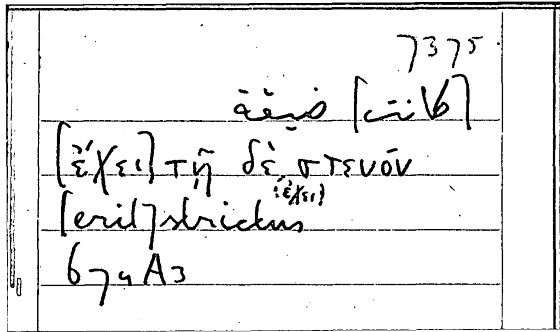 7375
[كانت] ضيقة
[ἔχει] τῇ δὲ στενόν
[ἔχει]
[erit] strictus
674A3